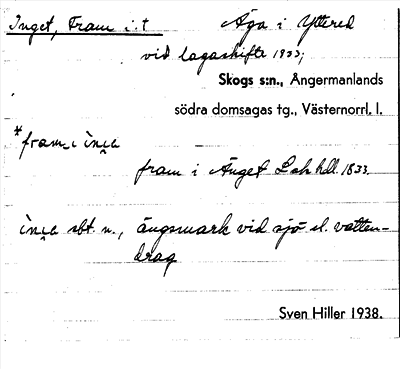 Inget, Fram i:t Äga i Yttered
vid lagaskifte 1933;
Skogs s:n., Ångermanlands
södra domsagas tg., Västernorrl. l.
*fram i
fram i Änget Lsk hdl. 1833.
sbt. n., ängsmark vid sjö el. vatten-
drag
Sven Hiller 1938.